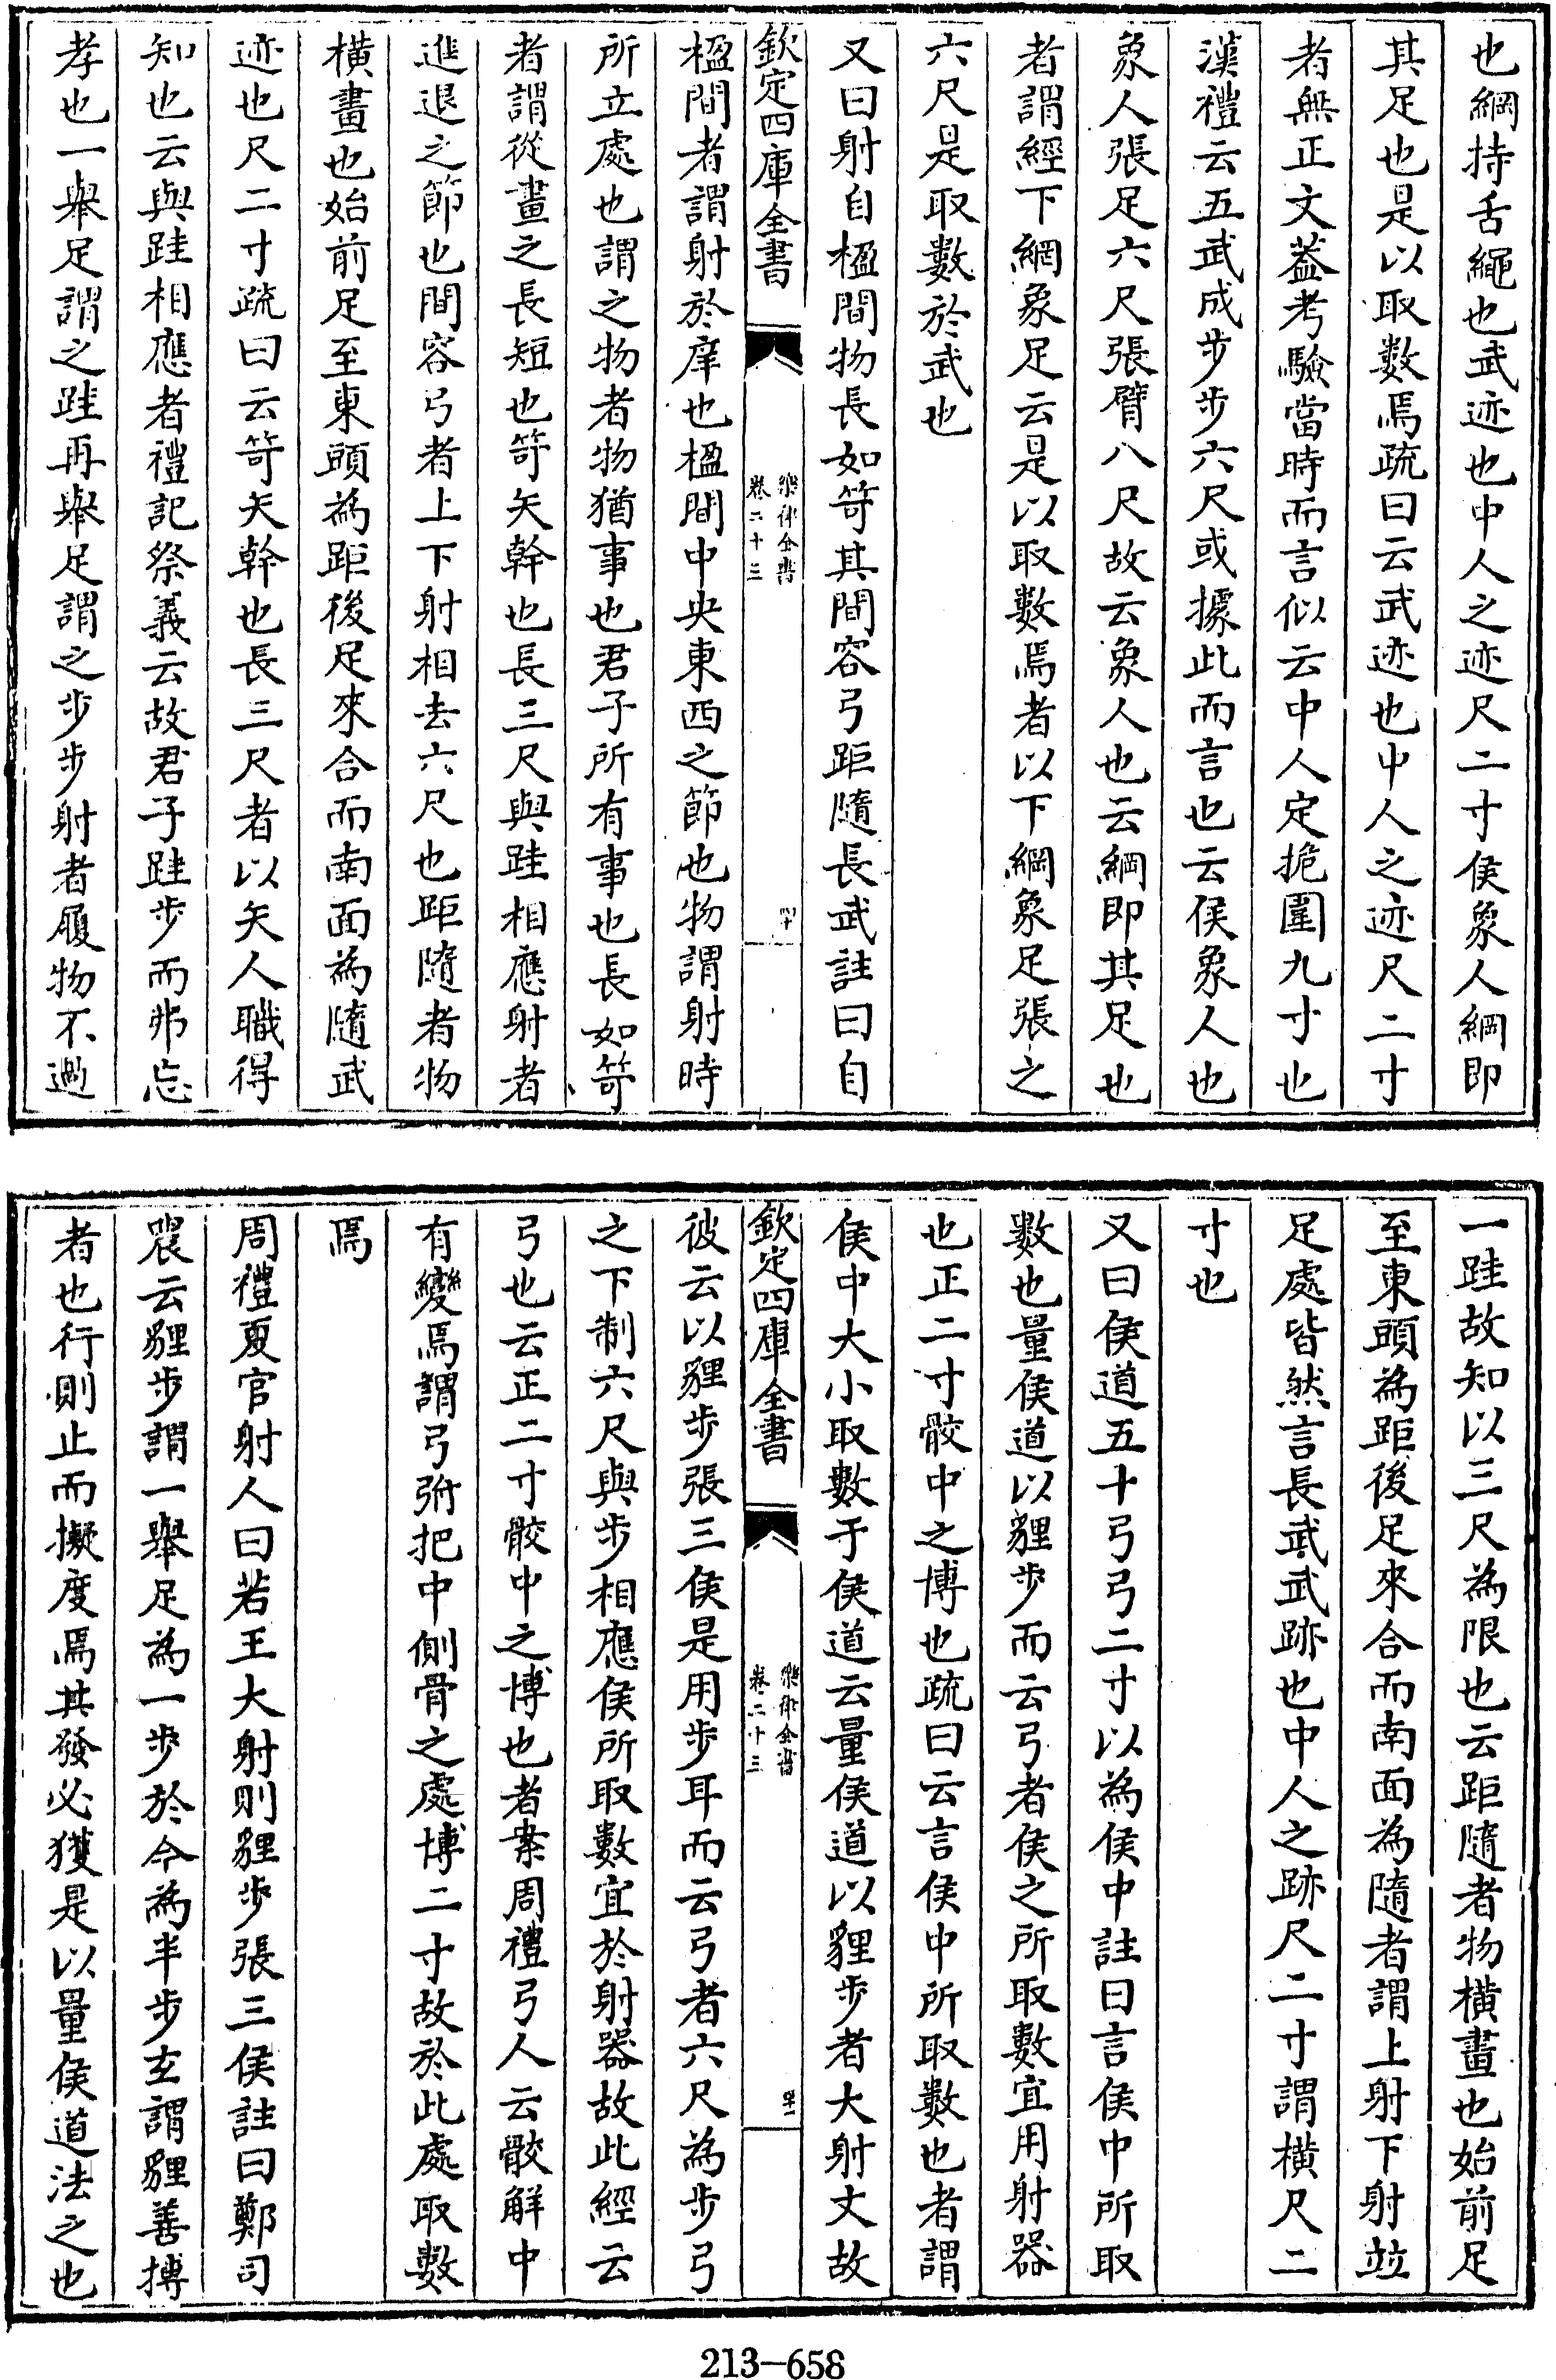 也綱持舌繩也武迹也中人之迹尺二寸侯象人綱即
其足也是以取數焉疏曰云武迹也中人之迹尺二寸
者無正文蓋考驗當時而言似云中人定扼圍九寸也
漢禮云五武成步步六尺或據此而言也云侯象人也
象人張足六尺張臂八尺故云象人也云綱即其足也
者謂經下綱象足云是以取數焉者以下綱象足張之
六尺是取數於武也
又曰射自楹間物長如笴其間容弓距隨長武註曰自
欽定四庫全書
樂律全書
卷二十三
四十
楹間者謂射於庠也楹間中央東西之節也物謂射時
所立處也謂之物者物猶事也君子所有事也長如笴
者謂從畫之長短也笴矢幹也長三尺與跬相應射者
進退之節也間容弓者上下射相去六尺也距隨者物
橫畫也始前足至東頭為距後足來合而南面為隨武
迹也尺二寸疏曰云笴矢幹也長三尺者以矢人職得
知也云與跬相應者禮記祭義云故君子跬步而弗忘
孝也一舉足謂之跬再舉足謂之步步射者履物不過
一跬故知以三尺為限也云距隨者物橫畫也始前足
至東頭為距後足來合而南面為隨者謂上射下射竝
足處皆然言長武武跡也中人之跡尺二寸謂橫尺二
寸也
又曰侯道五十弓弓二寸以為侯中註曰言侯中所取
數也量侯道以貍步而云弓者侯之所取數宜用射器
也正二寸骹中之博也疏曰云言侯中所取數也者謂
侯中大小取數于侯道云量侯道以貍步者大射文故
欽定四庫全書
樂律全書
卷二十三
四十一
彼云以貍步張三侯是用步耳而云弓者六尺為步弓
之下制六尺與步相應侯所取數宜於射器故此經云
弓也云正二寸骹中之博也者案周禮弓人云骹解中
有變焉謂弓弣把中側骨之處博二寸故於此處取數
焉
周禮夏官射人曰若王大射則貍步張三侯註曰鄭司
農云貍步謂一舉足為一步於今為半步玄謂貍善搏
者也行則止而擬度焉其發必獲是以量侯道法之也
213-658